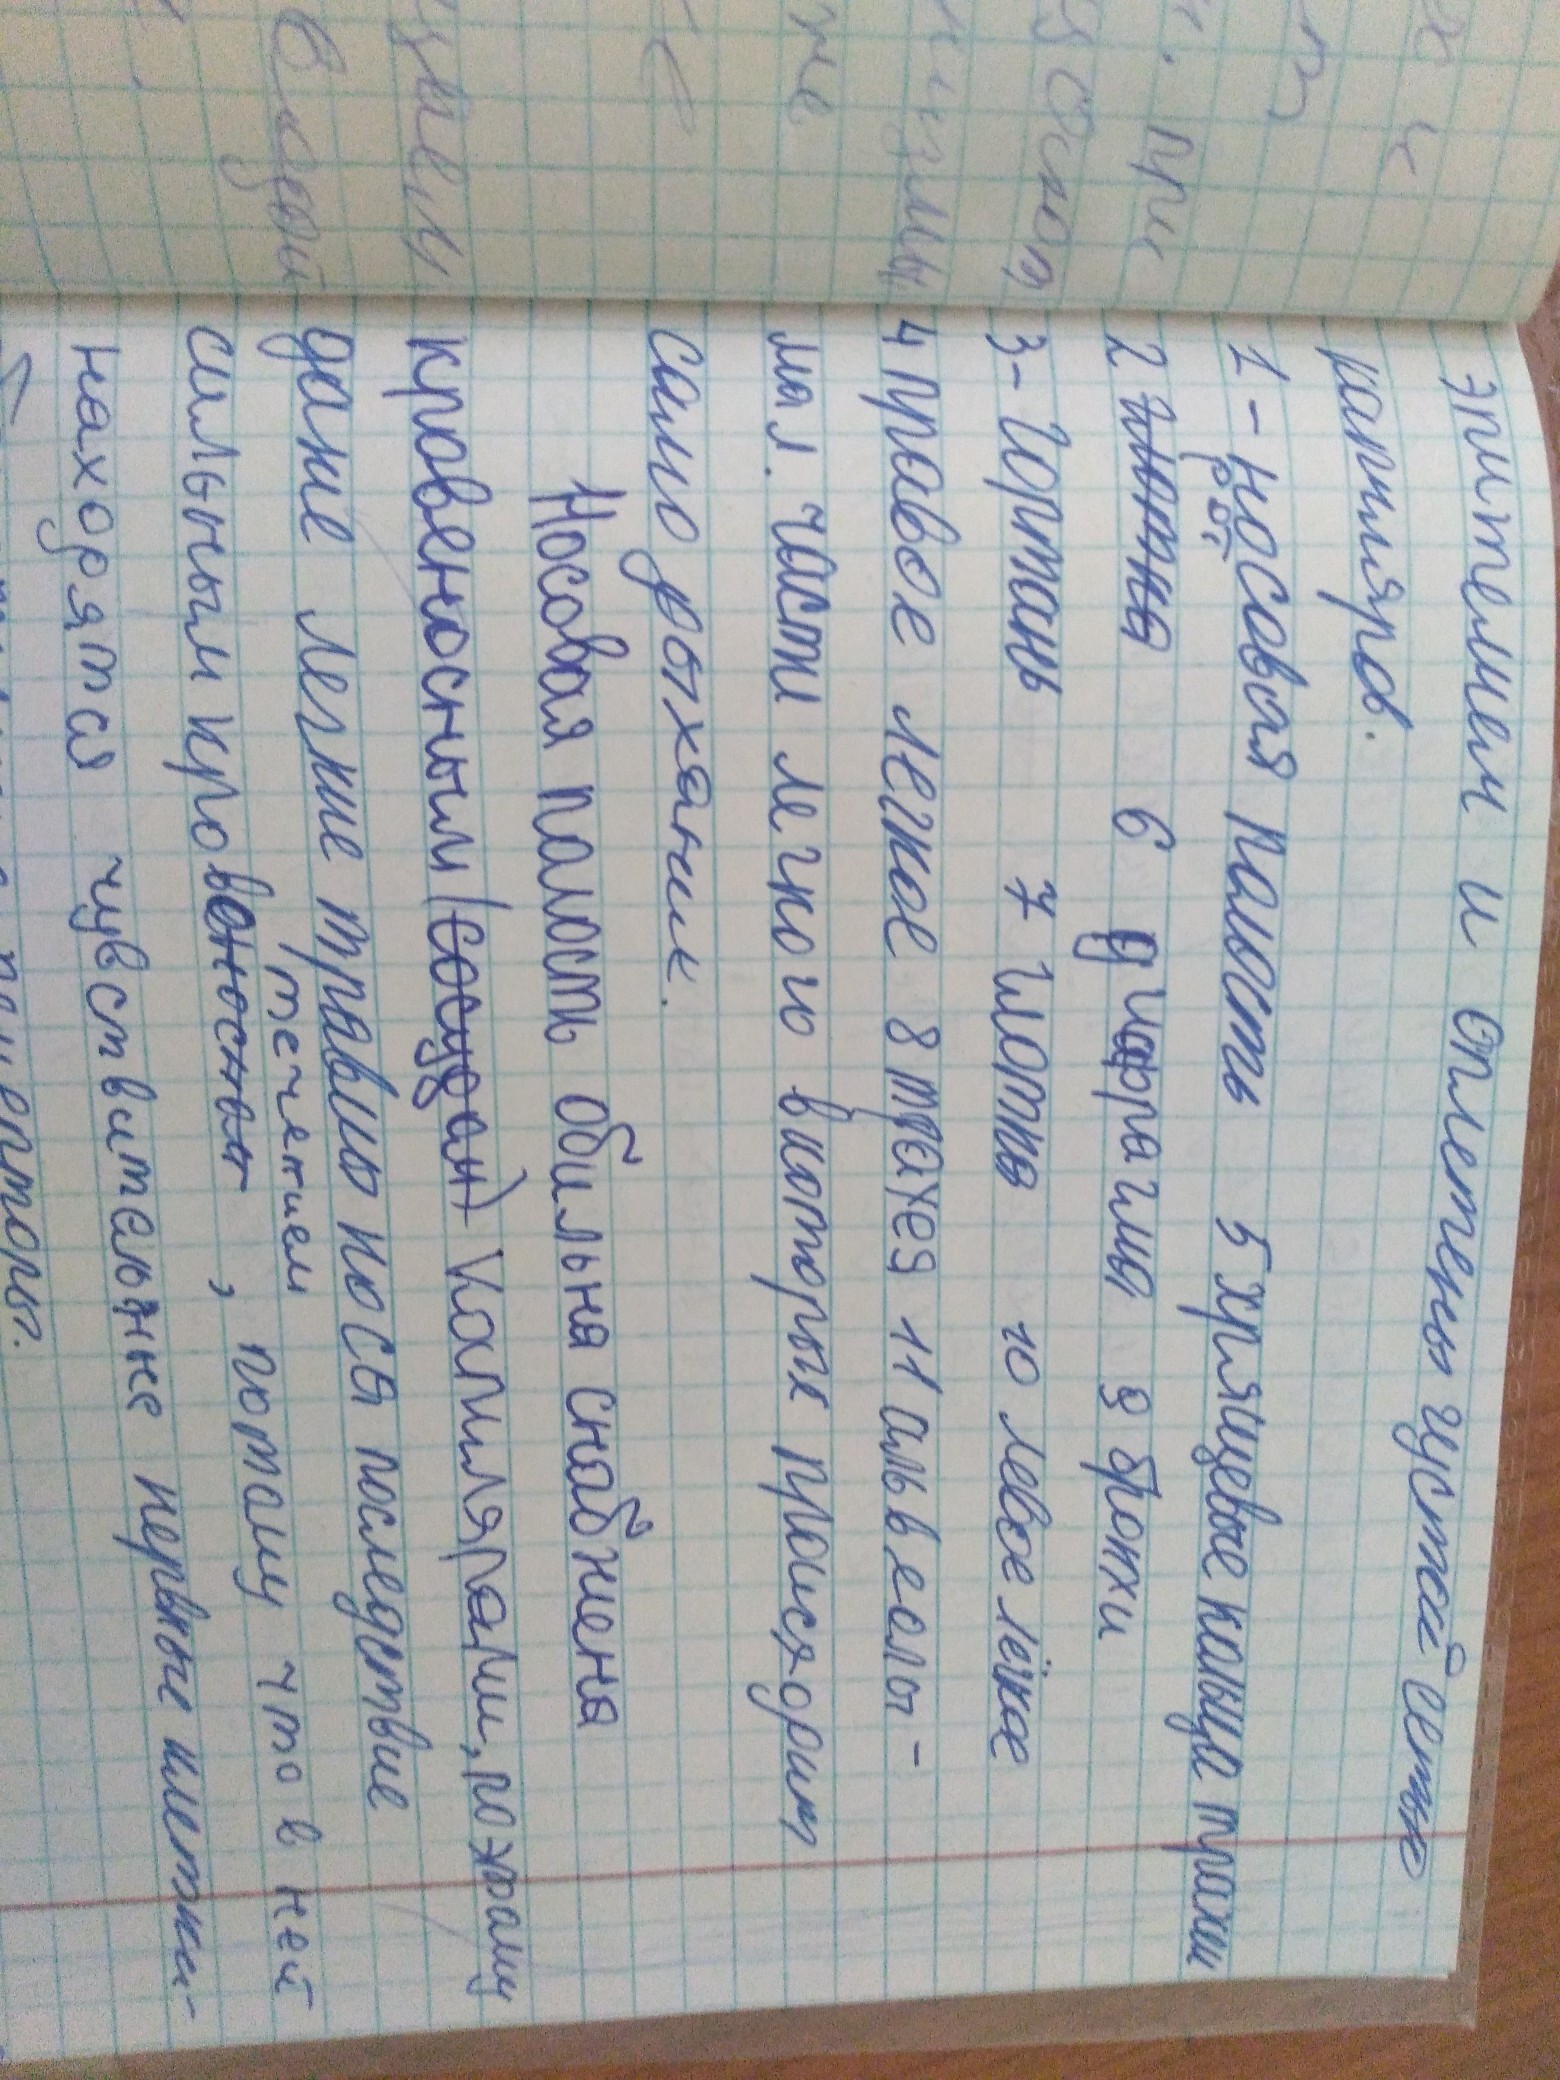 эпителием и оплетены густой сетью
капиляров.
1 - носовая полость 5 хрящевые кольца трахеи
рот
2 глотка 6 диафрагмы 9 бронхи
3 - Гортань 7 глотка 10 левое лёгкое
4 правое легкое 8 трахея 11 альвеолы -
мал. части легкого в которых происходит
само дыхание.
Носовая полость обильня снабжена
кровеносным (сосудан) капилярами, поэтому
даже легкие травмы носа последствие
течением
сильным кровоносная , потому что в ней
находятся чувствительные нервные клетки-
рецепторы.